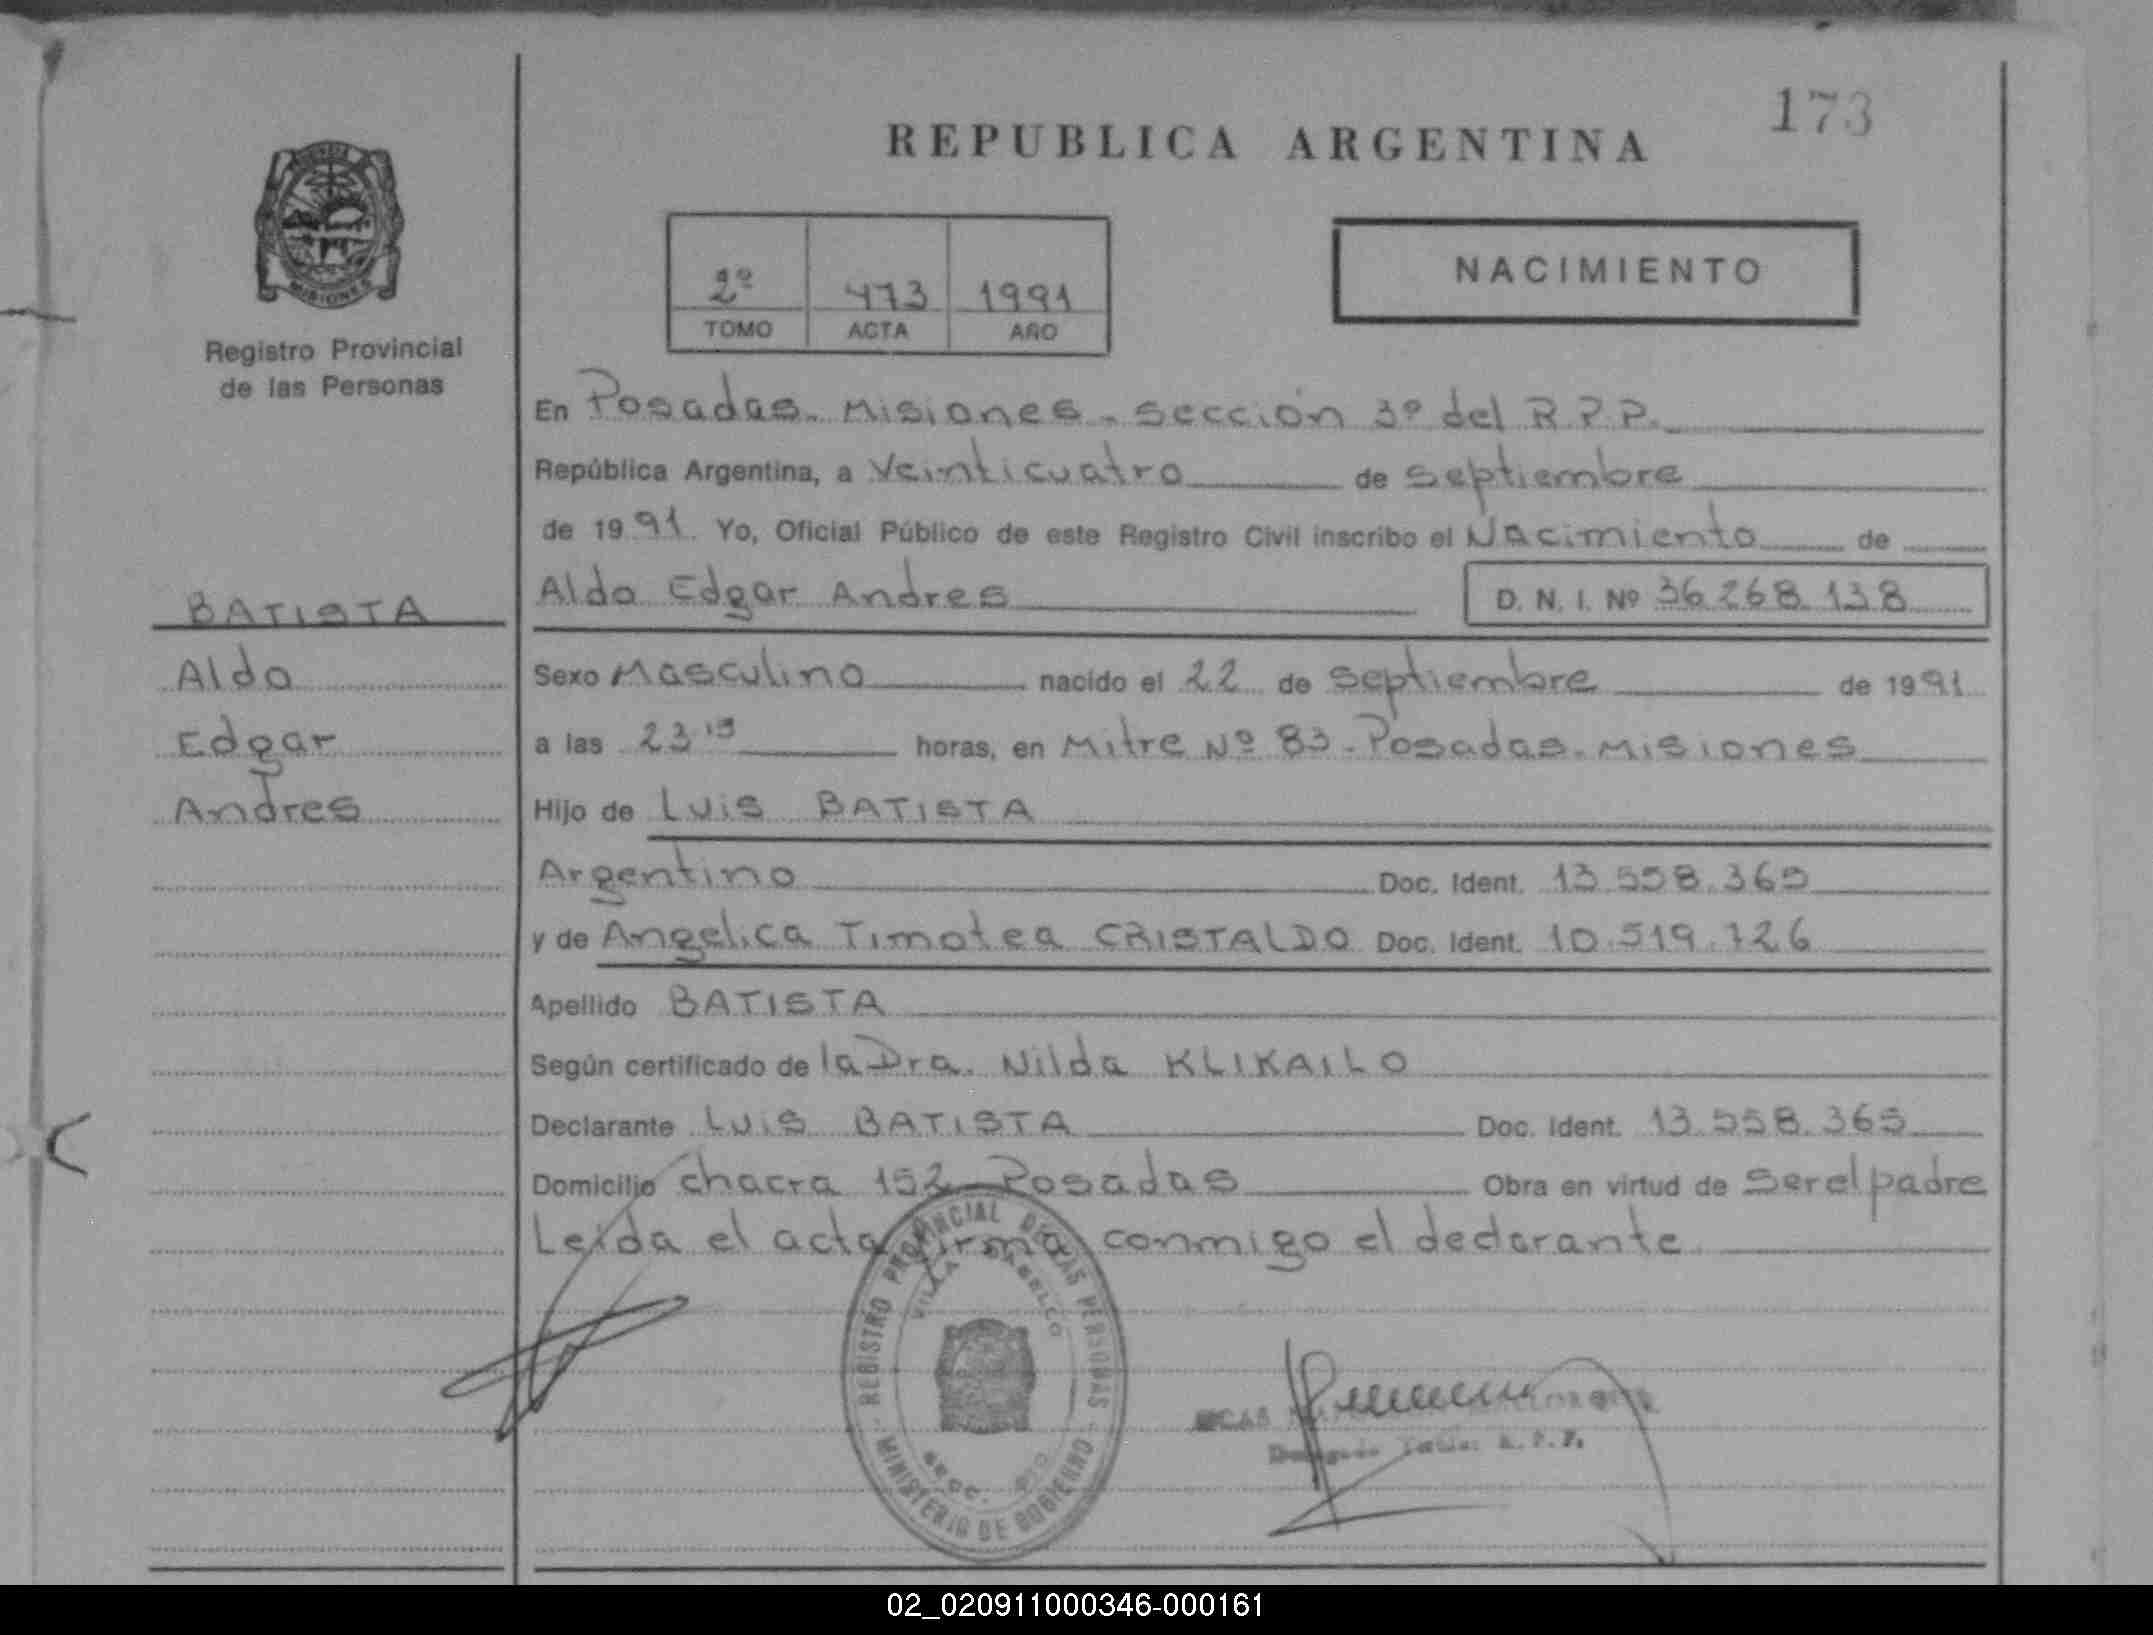 173
REPUBLICA ARGENTINA
MISIONES
Registro Provincial
de las Personas
2º 473 1991
TOMO ACTA AÑO
NACIMIENTO
En Posadas - Misiones - sección 3º del R.P.P.
República Argentina, a Veinticuatro de septiembre
de 1991 Yo, Oficial Público de este Registro Civil inscribo el Nacimiento de
Aldo Edgar Andres D. N. I. Nº 36.268.138
BATISTA
Aldo
Edgar
Andres
Sexo Masculino nacido el 22 de septiembre de 1991
a las 23 15 horas, en Mitre Nº 83 - Posadas - Misiones
Hijo de Luis BATISTA
Argentino Doc. Ident. 13.558.365
y de Angelica Timotea CRISTALDO Doc. Ident. 10.519.726
Apellido BATISTA
Según certificado de la Dra. Nilda KLIKAILO
Declarante Luis BATISTA Doc. Ident. 13.558.365
Domicilio chacra 152 - Posadas Obra en virtud de ser el padre
Leida el acta firma conmigo el declarante
REGISTRO PROVINCIAL DE LAS PERSONAS
VILLA
SECC.
MINISTERIO DE GOBIERNO
R. P. P.
02_020911000346-000161